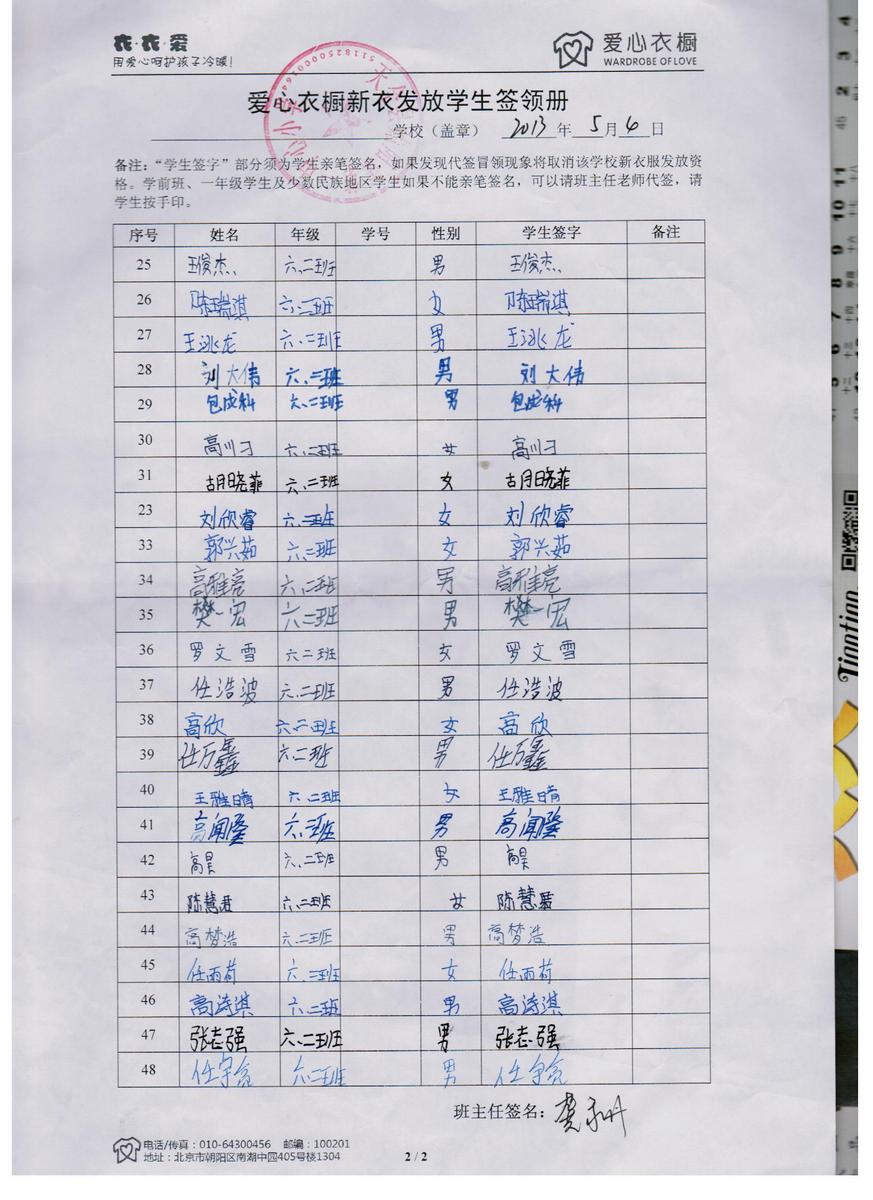 衣·衣·爱
用爱心呵护孩子冷暖!
爱心衣橱
WARDROBE OF LOVE
爱心衣橱新衣发放学生签领册
学校（盖章） 2013年 5月6日
备注：“学生签字”部分须为学生亲笔签名，如果发现代签冒领现象将取消该学校新衣服发放资
格。学前班、一年级学生及少数民族地区学生如果不能亲笔签名，可以请班主任老师代签，请
学生按手印。
序号 姓名 年级 学号 性别 学生签字 备注
25 王俊杰 六.二班 男 王俊杰
26 陈瑞淇 六.二班 女 陈瑞淇
27 王兆龙 六.二班 男 王兆龙
28 刘大伟 六.二班 男 刘大伟
29 包成科 六.二班 男 包成科
30 高川刁 六.二班 女 高川刁
31 胡晓菲 六.二班 女 胡晓菲
23 刘欣睿 六.二班 女 刘欣睿
33 郭兴茹 六.二班 女 郭兴茹
34 高雅亮 六.二班 男 高雅亮
35 樊一宏 六.二班 男 樊一宏
36 罗文雪 六二班 女 罗文雪
37 任浩波 六.二班 男 任浩波
38 高欣 六二班 女 高欣
39 任万鑫 六.二班 男 任万鑫
40 王雅晴 六.二班 女 王雅晴
41 高闻隆 六.二班 男 高闻隆
42 高昊 六.二班 男 高昊
43 陈慧君 六.二班 女 陈慧君
44 高梦浩 六.二班 男 高梦浩
45 任雨荷 六.二班 女 任雨荷
46 高诗淇 六.二班 男 高诗淇
47 张志强 六.二班 男 张志强
48 任宇亮 六.二班 男 任宇亮
班主任签名：
电话/传真：010-64300456 邮编：100201
地址：北京市朝阳区南湖中园405号楼1304
2 / 2